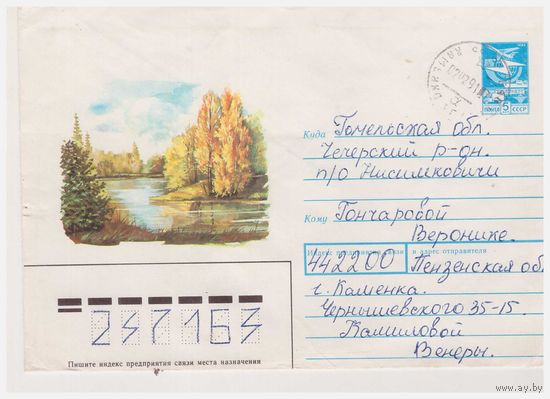 ПОЧТА СССР
5
Куда Гомельская обл.
Чечерский р-он.
п/о Нисимковичи
Кому Гончаровой
Веронике.
Индекс предприятия связи и адрес отправителя
442200 Пензенская об
г. Каменка.
Чернышевского 35-15.
Камиловой
Венеры.
247163
Пишите индекс предприятия связи места назначения
www.ay.by